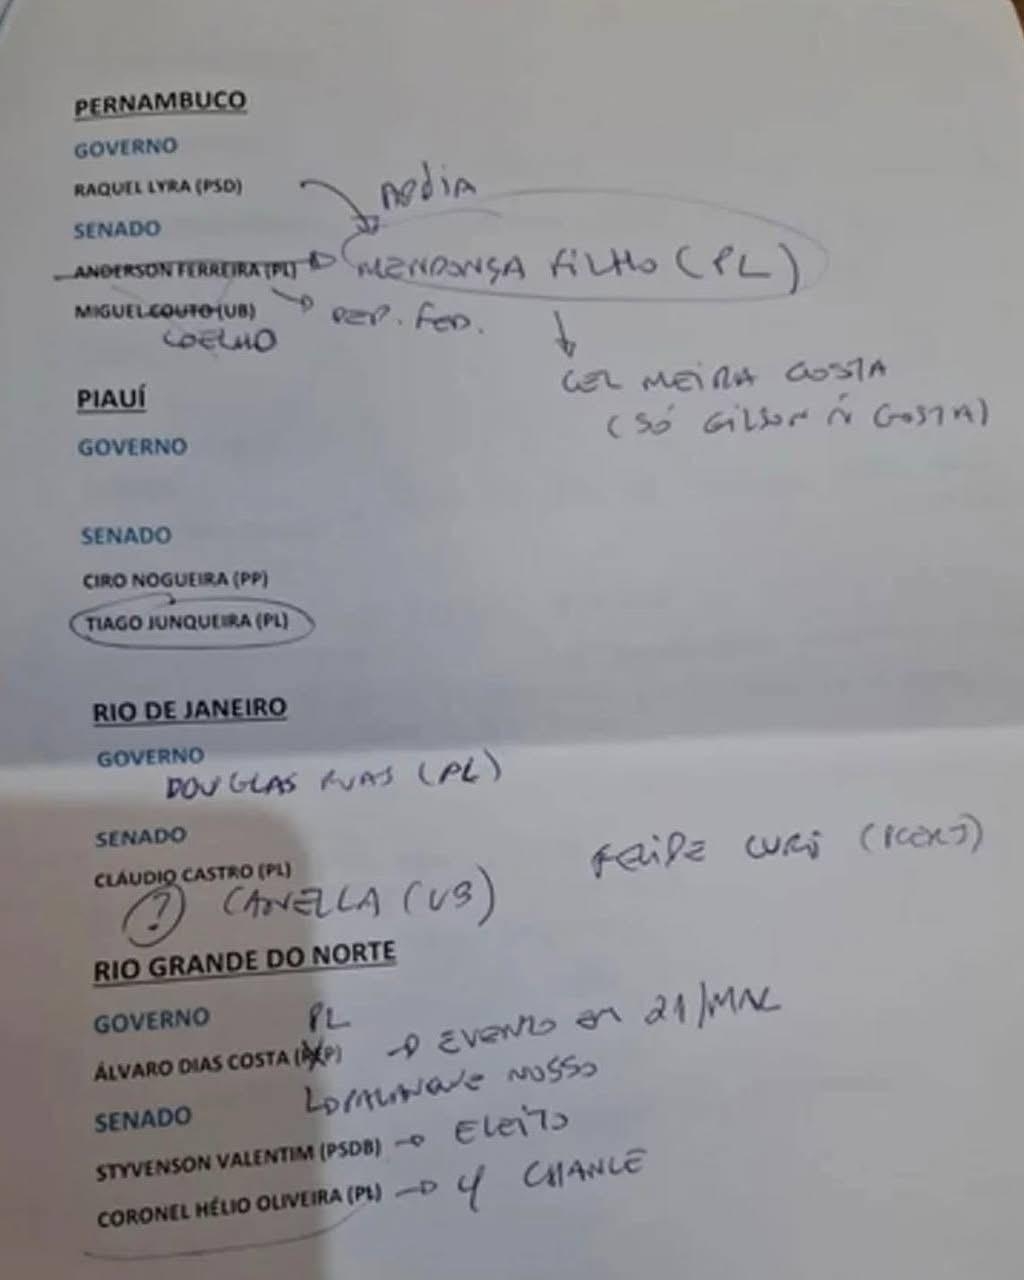 PERNAMBUCO
GOVERNO
RAQUEL LYRA (PSD)
APOIA
SENADO
ANDERSON FERREIRA (PL) MENDONÇA FILHO (PL)
MIGUEL COUTO (UB) DEP. FED.
COELHO
CEL MEIRA GOSTA
(SÓ GILSON Ñ GOSTA)
PIAUÍ
GOVERNO
SENADO
CIRO NOGUEIRA (PP)
TIAGO JUNQUEIRA (PL)
RIO DE JANEIRO
GOVERNO
DOUGLAS RUAS (PL)
SENADO
FELIPE CURI (PCERJ)
CLÁUDIO CASTRO (PL)
? CANELLA (UB)
RIO GRANDE DO NORTE
GOVERNO PL
ÁLVARO DIAS COSTA EVENTO EM 21/MAR
PALANQUE NOSSO
SENADO
STYVENSON VALENTIM (PSDB) ELEITO
CORONEL HÉLIO OLIVEIRA (PL) CHANCE